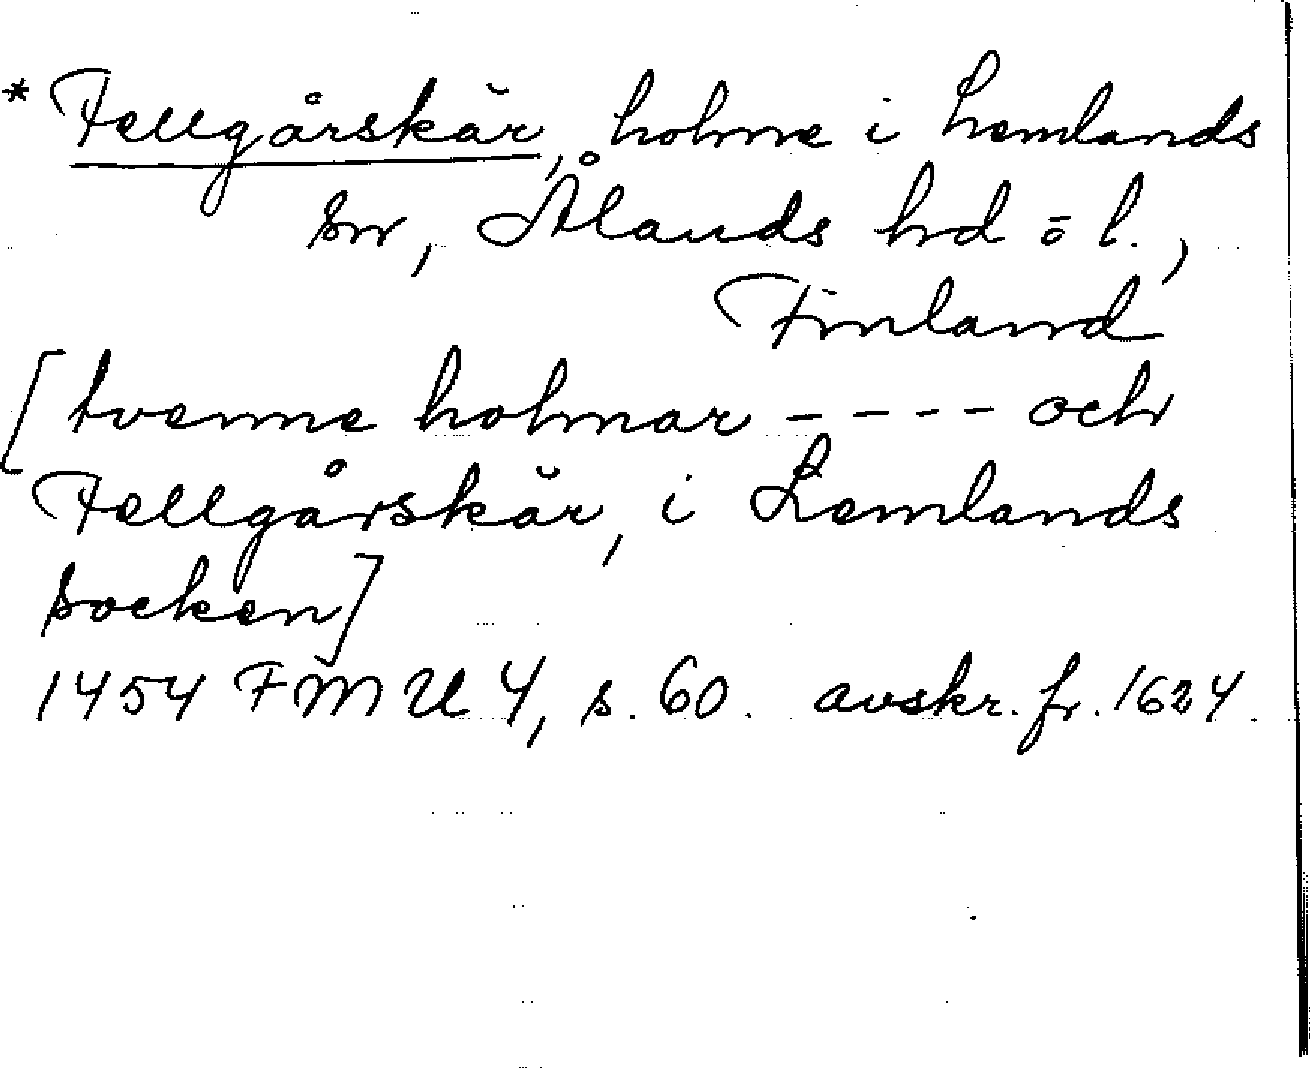 * Fellgårskär, holme i Lemlands
sn, Ålands hd o l.,
Finland
[tvenne holmar - - - - och
Fellgårskär, i Lemlands
socken]
1454 FMU 4, s. 60. avskr. fr. 1624.